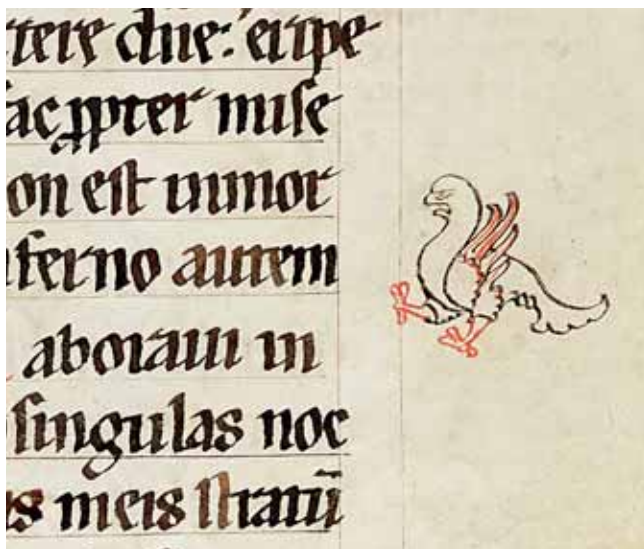 tere dn̄e: eripe
fac ꝓpter mise
on est in mor
nferno autem
aboraui in
singulas noc
is meis stratū